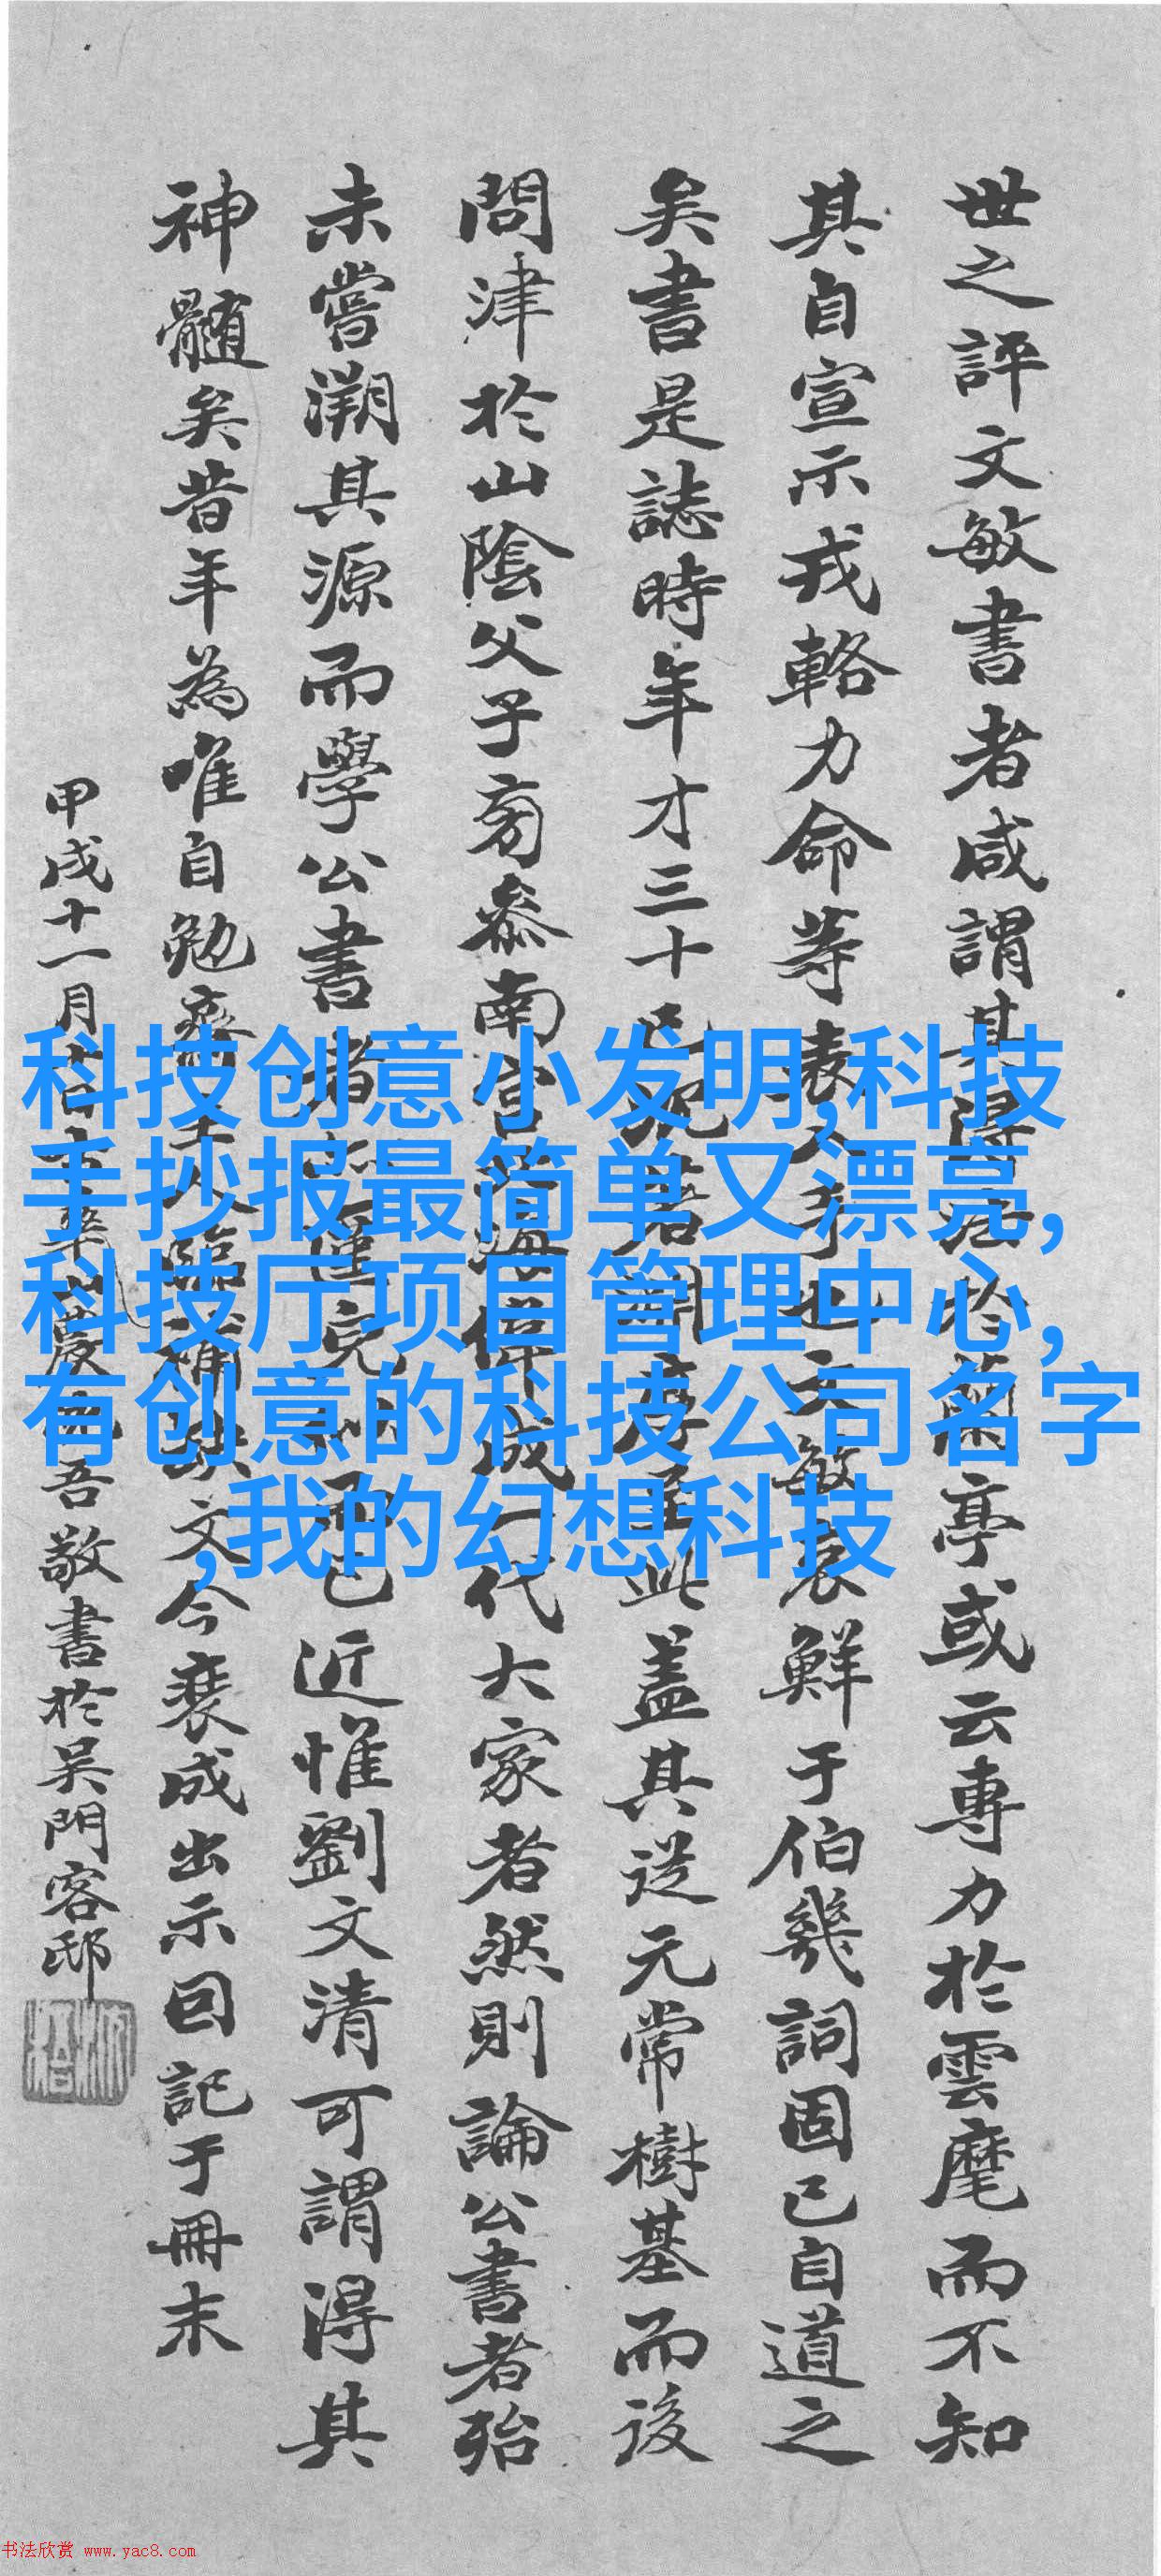 世之評文敏書者咸謂其得法於蘭亭或云專力於雲麾而不知
其自宣示戎輅力命等表入手也文敏哀鮮于伯幾詞固已自道之
矣書是誌時年才三十已脱此蓋其從元常樹基而後
問津於山陰父子旁叅南宮成一代大家者然則論公書者殆
未嘗溯其源而學公書者而已近惟劉文清可謂得其
神髓矣昔年為唯自勉齋主人臨補缺文今裝成出示囙記于冊末
甲戌十一月吾敬書於吴門客邸
科技创意小发明,科技
手抄报最简单又漂亮,
科技厅项目管理中心,
有创意的科技公司名字
,我的幻想科技
书法欣赏 www.yac8.com